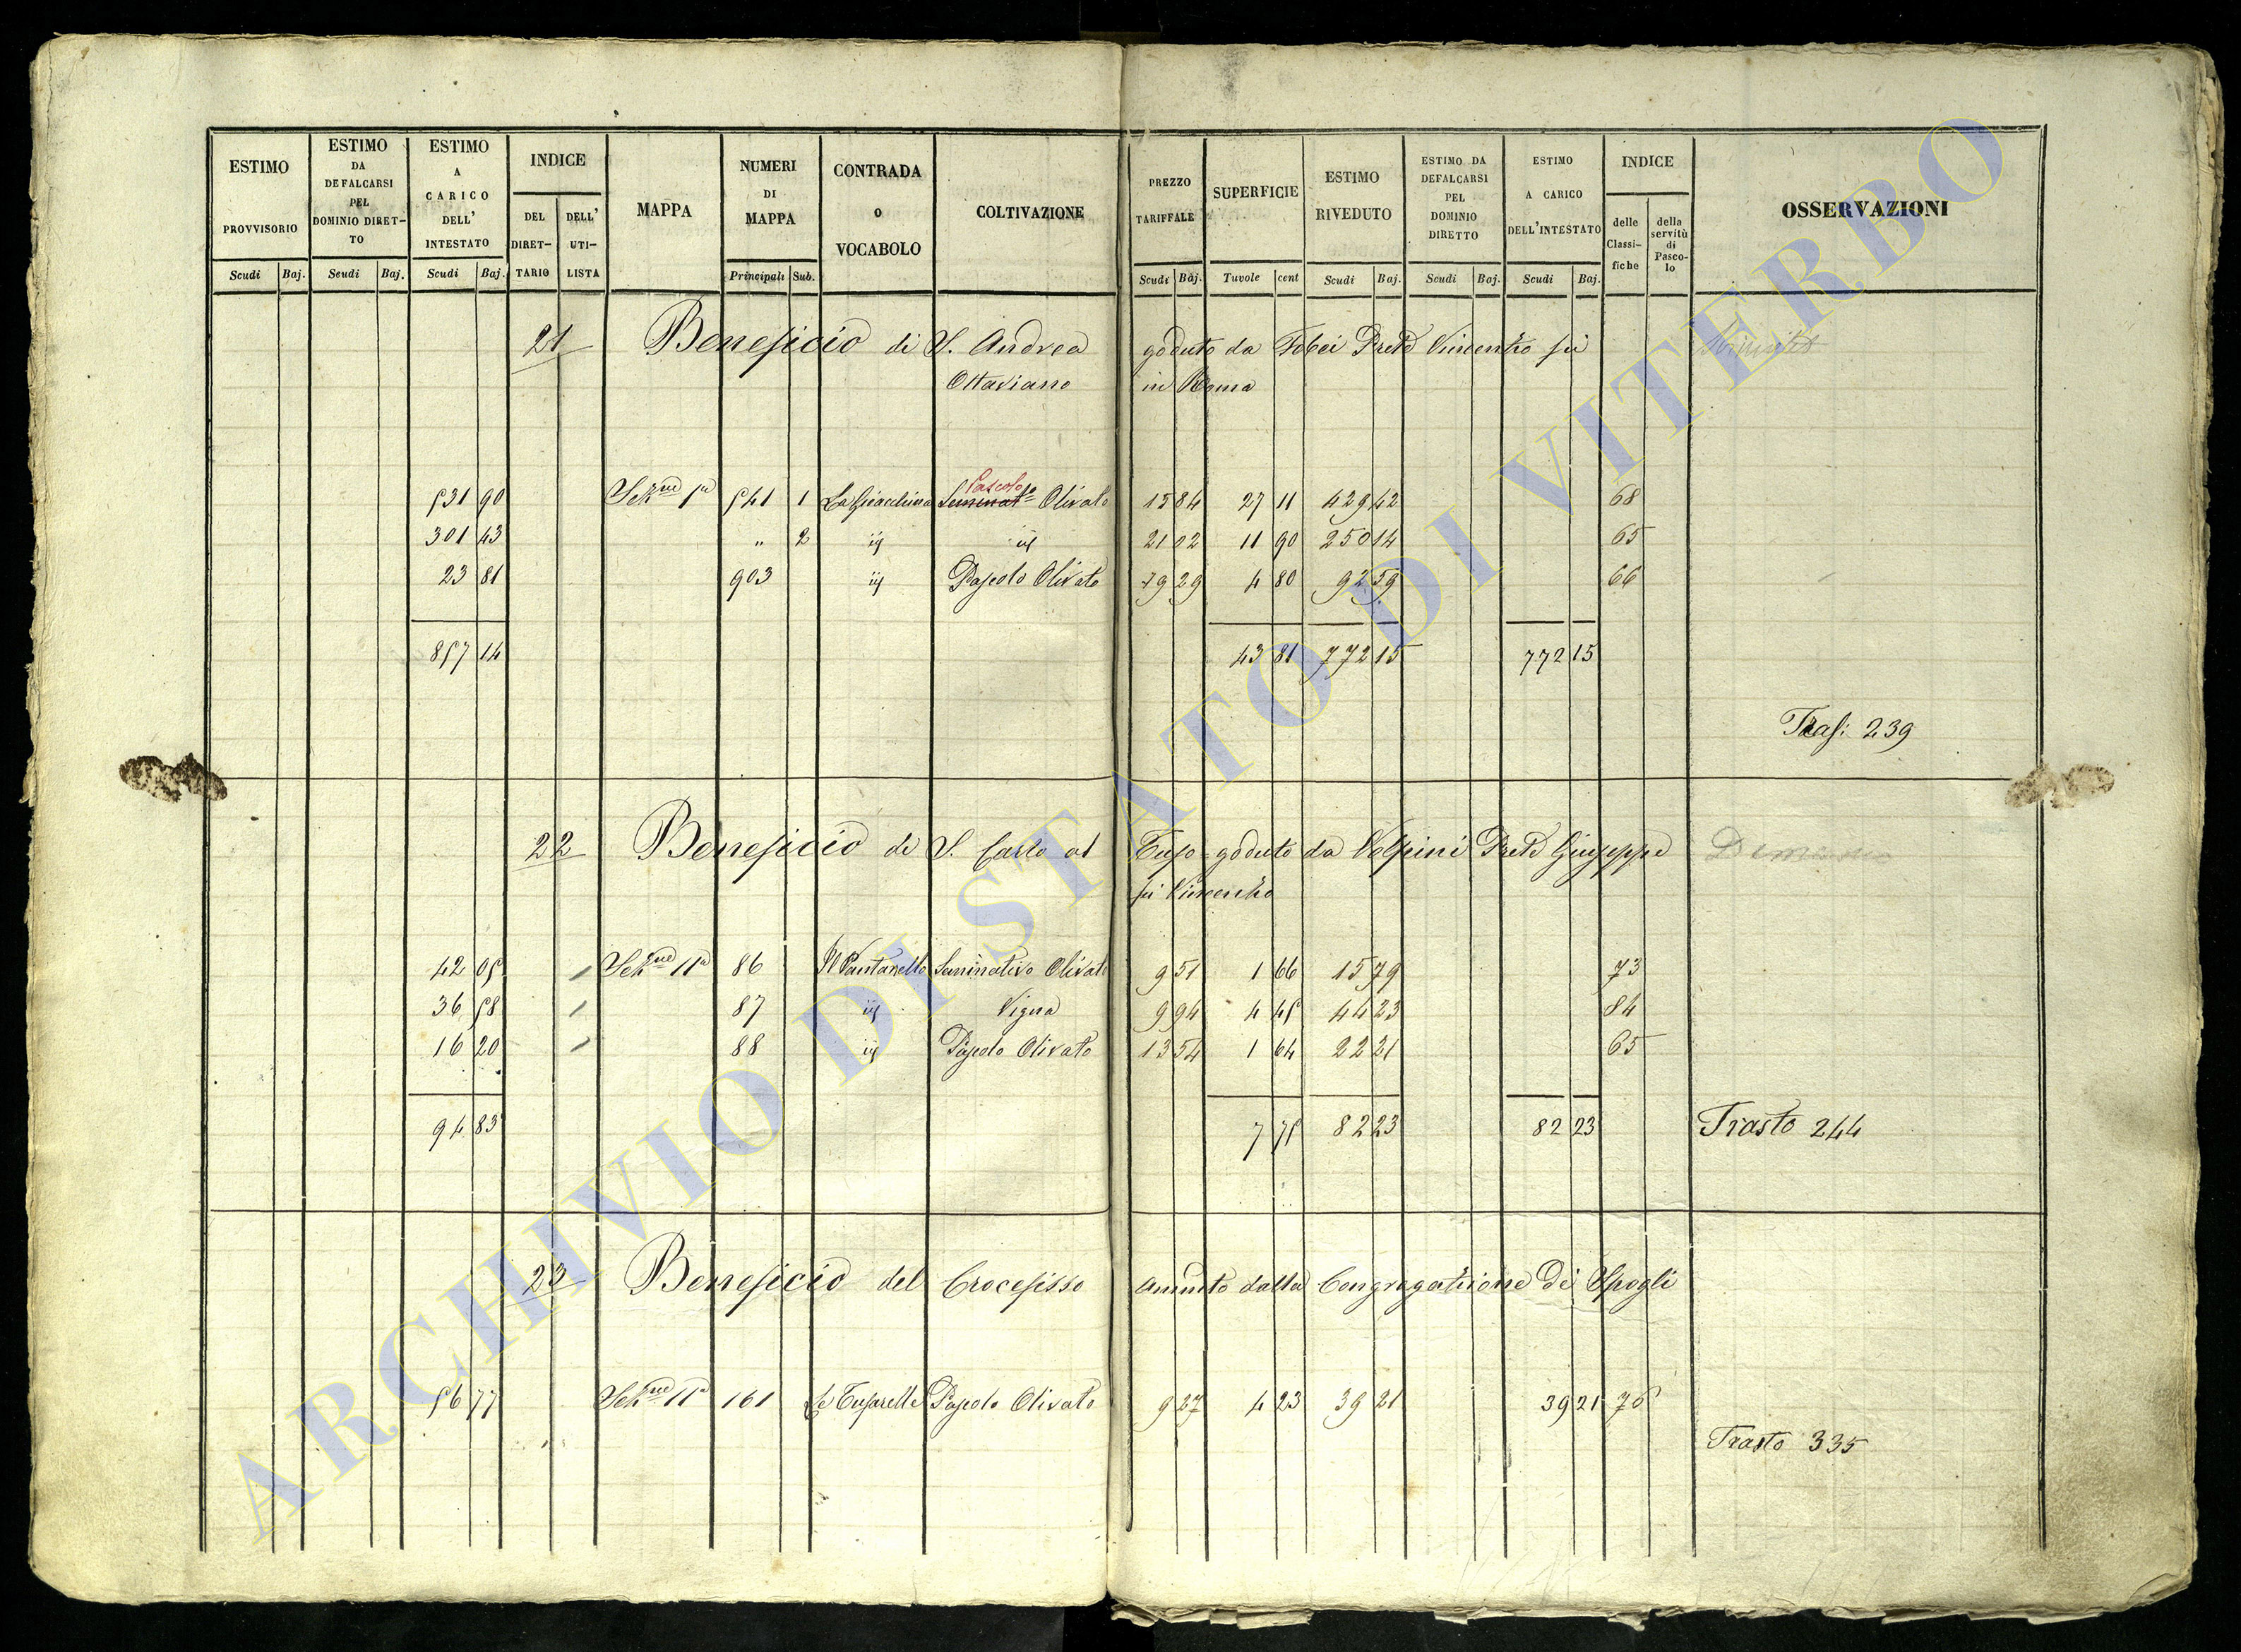 ESTIMO PROVVISORIO Scudi Baj.
ESTIMO DA DEFALCARSI PEL DOMINIO DIRET-TO Scudi Baj.
ESTIMO A CARICO DELL' INTESTATO Scudi Baj.
INDICE DEL DIRET-TARIO DELL' UTI-LISTA
MAPPA
NUMERI DI MAPPA Principali Sub.
CONTRADA O VOCABOLO
COLTIVAZIONE
PREZZO TARIFFALE Scudi Baj.
SUPERFICIE Tuvole cent
ESTIMO RIVEDUTO Scudi Baj.
ESTIMO DA DEFALCARSI PEL DOMINIO DIRETTO Scudi Baj.
ESTIMO A CARICO DELL'INTESTATO Scudi Baj.
INDICE delle Classi-fiche della servitù di Pasco-lo
OSSERVAZIONI
21 Beneficio di S. Andrea goduto da Prete Vincenzo fù
Ottaviano in Roma
Pascolo
531 90 Sez.ne 1a 541 1 La Gioacchina Seminat.o Olivato 15 84 27 11 429 42 68
301 43 " 2 id id 21 02 11 90 250 14 65
23 81 903 id Pascolo Olivato 19 29 4 80 92 59 66
857 14 43 81 772 15 772 15
Trasf: 239
22 Beneficio di S. Carlo al Tufo goduto da Volpini Prete Giuseppe
fù Vincenzo
42 05 Sez.ne 11a 86 Il Pantanello Seminativo Olivato 9 51 1 66 15 79 73
36 58 87 id Vigna 9 94 4 45 44 23 84
16 20 88 id Pascolo Olivato 13 54 1 64 22 21 65
94 83 7 75 82 23 82 23 Trasto 244
23 Beneficio del Crocefisso Amm̃to dalla Congregazione dei Spogli
56 77 Sez.ne 11a 161 Le Tufarelle Pascolo Olivato 9 27 4 23 39 21 39 21 76
Trasto 335
ARCHIVIO DI STATO DI VITERBO